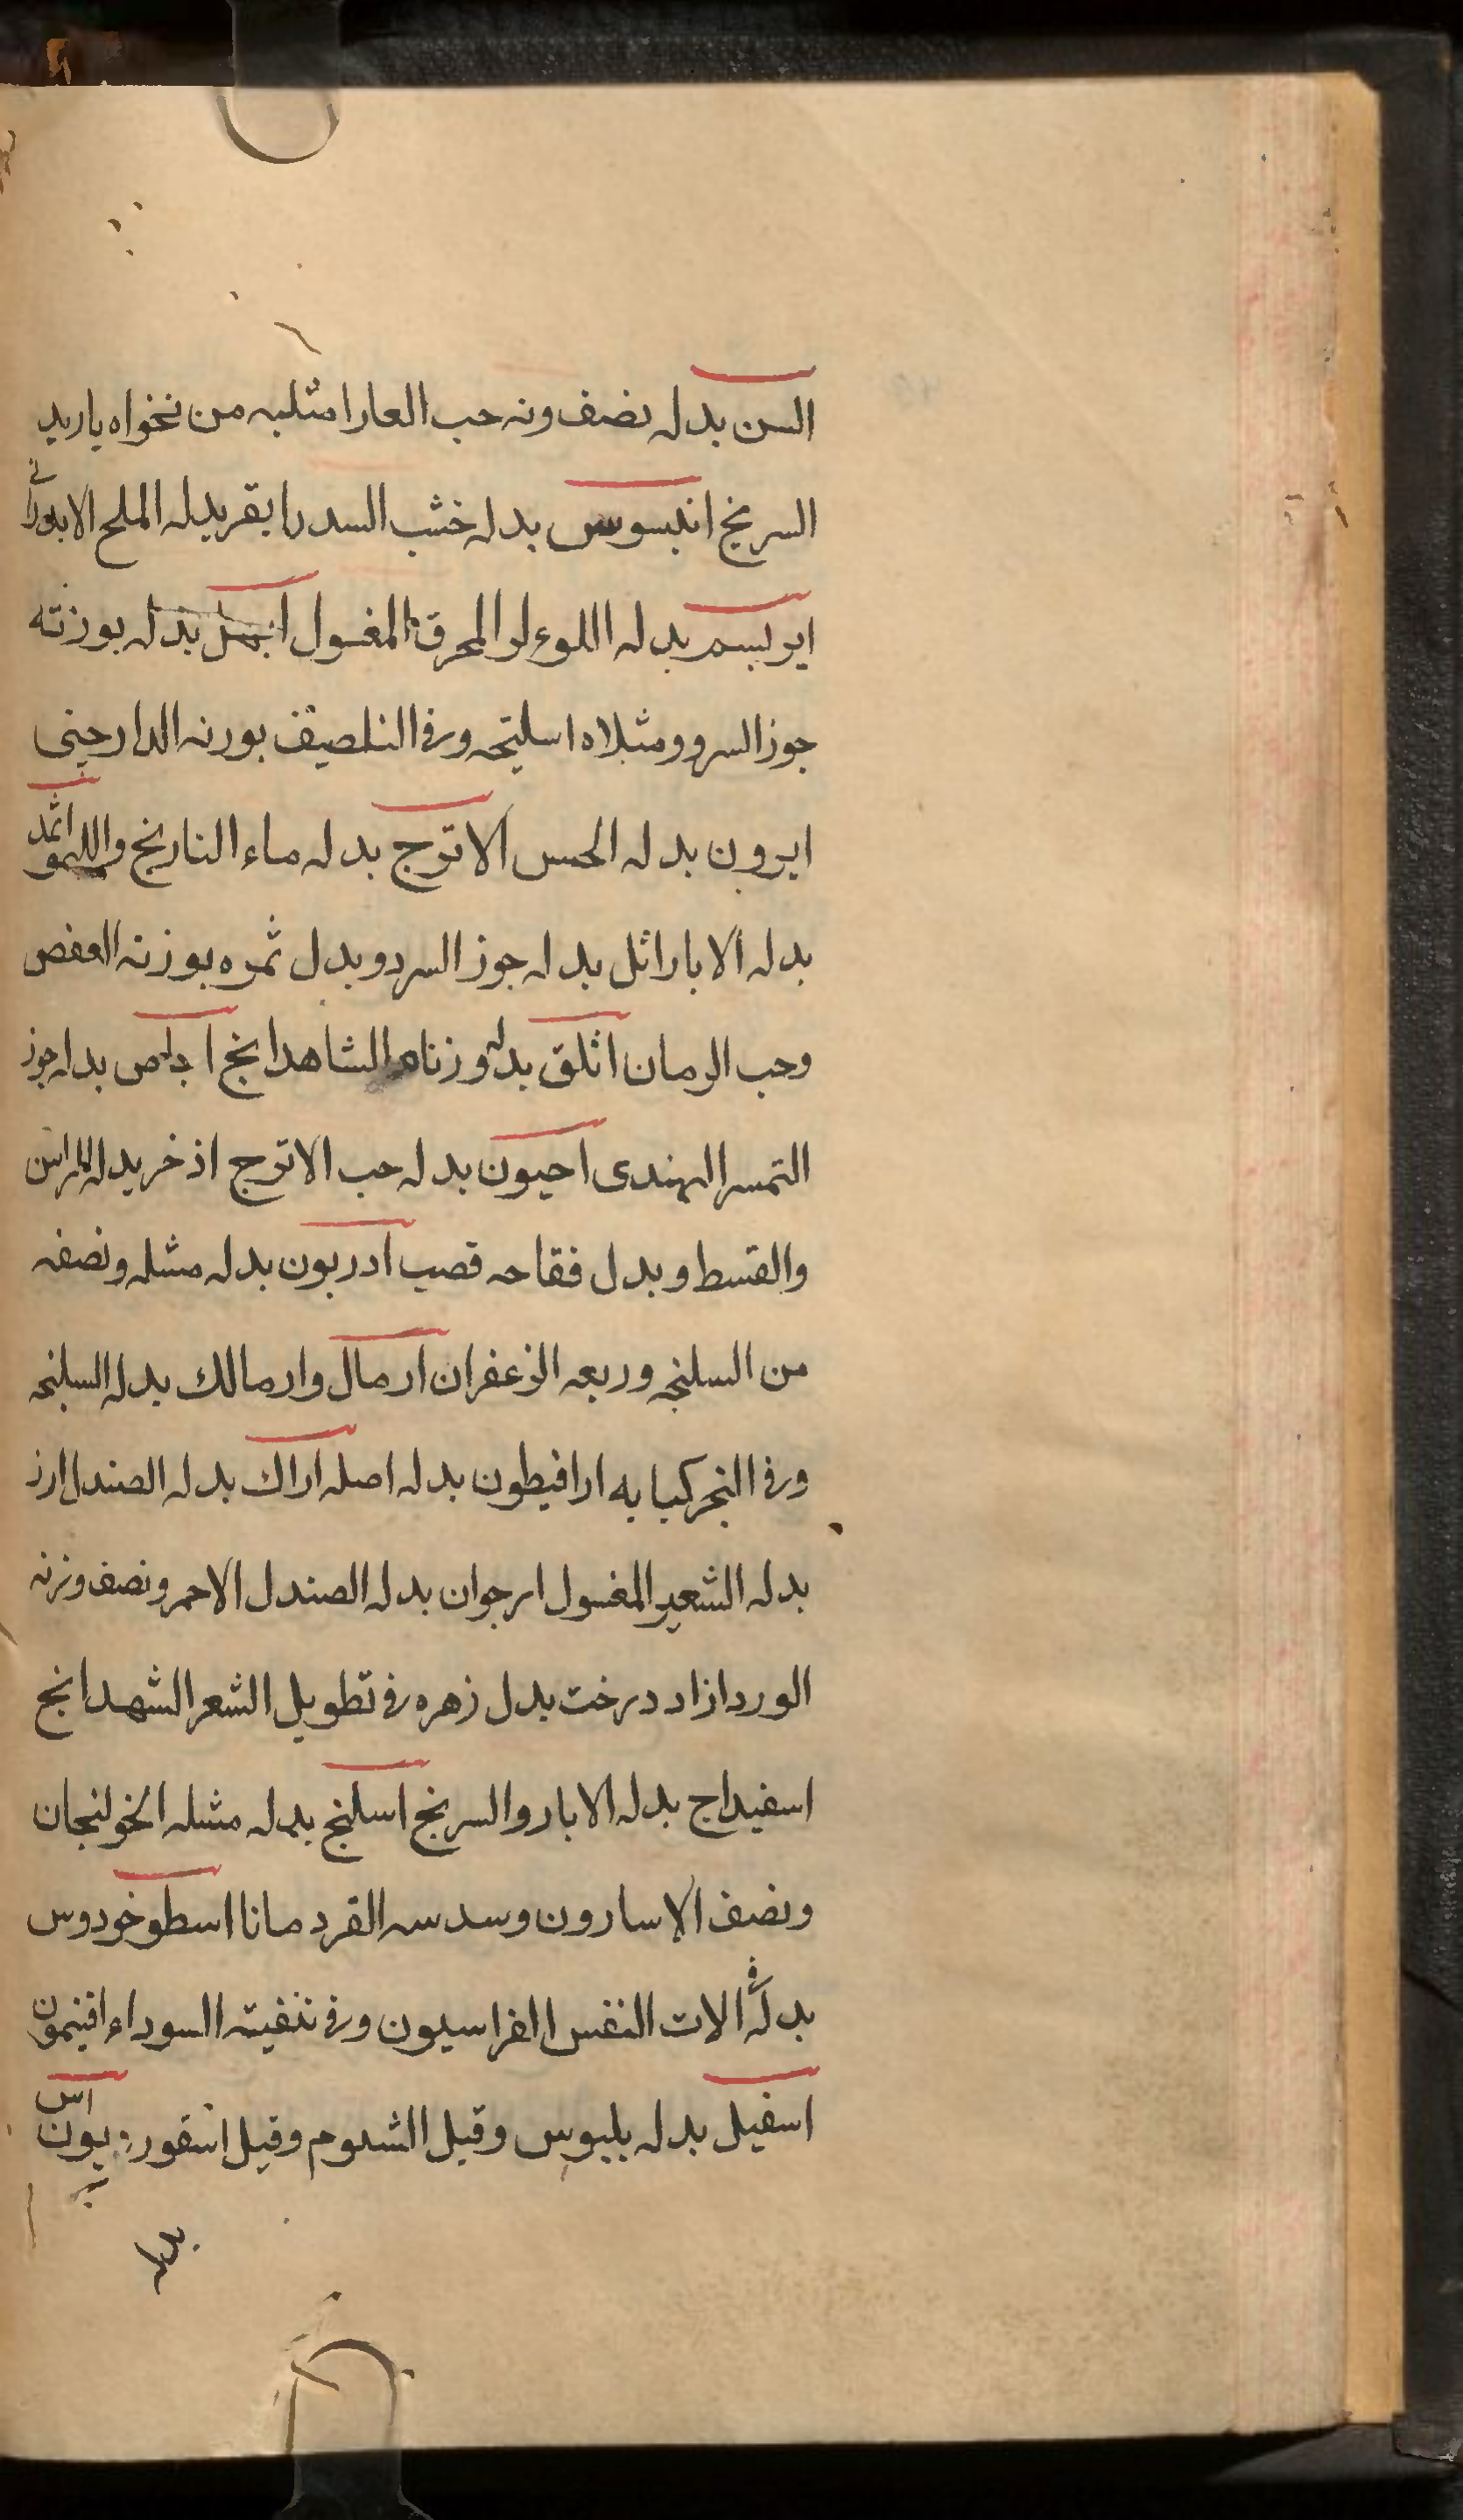 السن بدله نصف ونه حب العارا مثليه من نخواه ياربد
السرنج اندسوس بدله خشب السدر ابقر بدله الملح الاندراني
ابريسم بدله اللوءلو المحرق المغسول ابهل بدله بوزنته
جوز السرو ومثلاه اسليخه وفى التلطيف بورنه الدارجينى
ايرون بدله الحس الاترج بدله ماء النارنج والليمو اثمد
بدله الابار اثل بدله جوز السرو وبدل ثمره بوزنه العفص
وحب الرمان اثلق بدله وزناه الشاهدانج اجاص بدله جوز
التمر الهندى احيون بدله حب الاترج اذخر بدله الراسن
والقسط وبدل فقاحه قصب ادربون بدله مثله ونصفه
من السلنجه وربعه الزعفران ارمال وارمالك بدله السلنجه
وفى البخر كبابه ارافيطون بدله اصله اراك بدله الصندل ارز
بدله الشعير المغسول ارجوان بدله الصندل الاحمر ونصف وزنه
الورد ازاد درخت بدل زهره فى تطويل الشعر الشهدانج
اسفيداج بدله الابار والسرنج اسلنج بدله مثله الخولنجان
ونصف الاسارون وسدسه القردمانا اسطوخودوس
بدله فى الات النفس الفراسيون وفى تنقيته السوداء افتيمون
اسفيل بدله بلبوس وقيل الشوم وقيل اسقوربيون اس
بدله